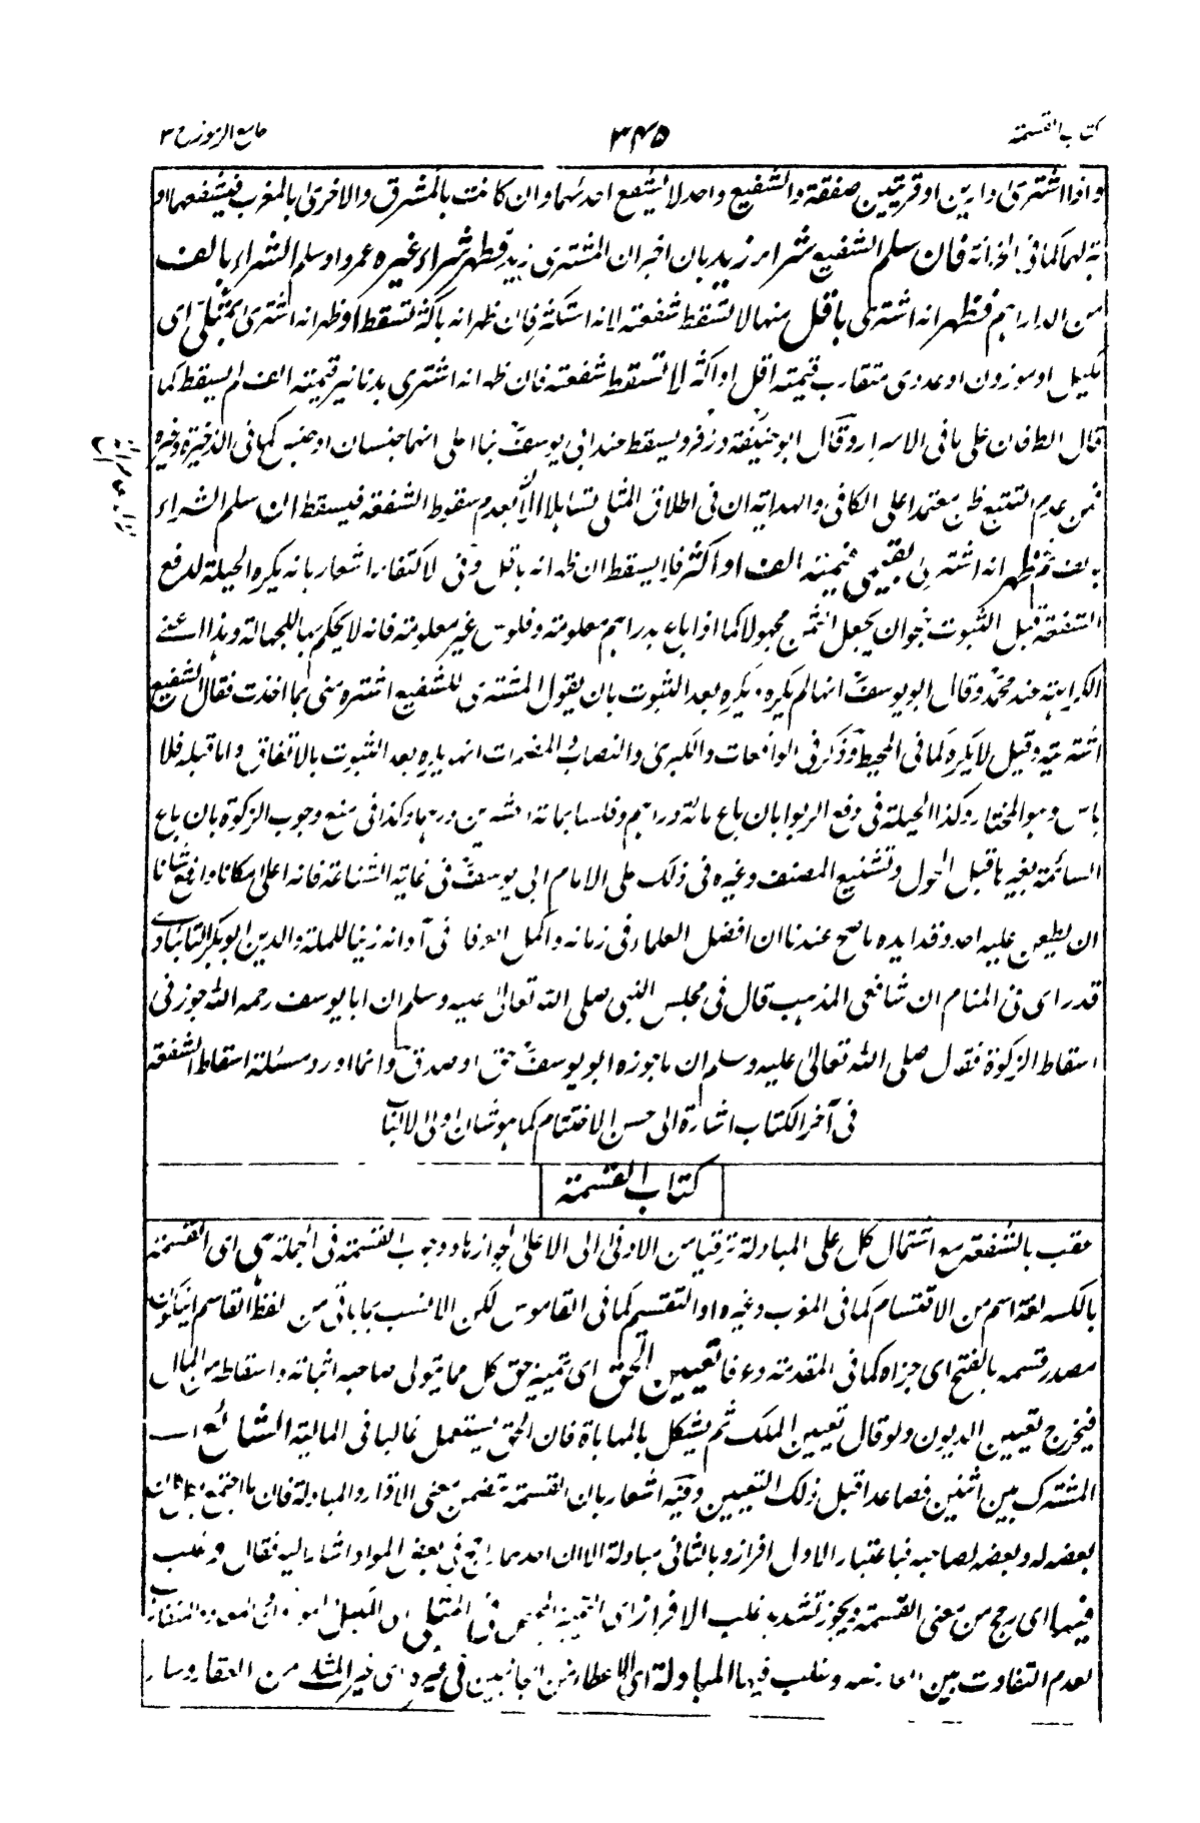 كتاب القسمة
٣٤٥
جامع الرموز ج ٣
واذا اشترى دارين او قريتين صفقة والشفيع واحد لا يشفع احدهما وان كانت بالمشرق والاخرى بالمغرب فيشفعهما او
تركهما كما فى الخزانة فان سلم الشفيع شراء زيد بان اخبر ان المشترى زيد فظهر شراء غيره عمرو او سلم الشراء بالف
من الدراهم فظهر انه اشترى باقل منها لا تسقط شفعته لانه استكثره فان ظهر انه باكثر تسقط او ظهر انه اشترى بمثلى اى
مكيل او موزون او عددى متقارب قيمته اقل او اكثر لا تسقط شفعته فان ظهر انه اشترى بدنانير قيمته الف لم يسقط كما
قال الطرفان على ما فى الاسرار وقال ابو حنيفة وزفر ويسقط عند ابى يوسف بناء على انهما جنسان او جنس كما فى الذخيرة وغيره
فمن عدم التتبع ظن معتمدا على الكافى والهداية ان فى اطلاق المثلى تساهلا بعدم سقوط الشفعة فيسقط ان سلم الشراء
بالف ثم ظهر انه اشترى بقيمى قيمته الف او اكثر فلا يسقط ان ظهر انه باقل وفى الاكتفاء اشعار بانه يكره الحيلة لدفع
الشفعة قبل الثبوت نحو ان يجعل الثمن مجهولا كما اذا باع بدراهم معلومة وفلوس غير معلومة فانه لا يحكم بها للجهالة وهذا اعنى
الكراهة عند محمد وقال ابو يوسف انها لم يكره ويكره بعد الثبوت بان يقول المشترى للشفيع اشتره منى بما اخذت فقال الشفيع
اشتريته وقيل لا يكره كما فى المحيط وذكر فى الواقعات والكبرى والنصاب والمضمرات انه يكره بعد الثبوت بالاتفاق واما قبله فلا
باس وهو المختار وكذا الحيلة فى دفع الربوا بان باع مائة دراهم وفلسا بمائة وعشرين درهما وكذا فى منع وجوب الزكوة بان باع
السائمة بغيرها قبل الحول وتشنيع المصنف وغيره فى ذلك على الامام ابى يوسف فى غاية الشناعة فانه اعلى مكانا وارفع شانا
ان يطعن عليه احد وقد ايده ما صح عندنا ان افضل العلماء فى زمانه واكمل العرفاء فى آوانه زين الملة والدين ابو بكر التايبادى
قد راى فى المنام ان شافعى المذهب قال فى مجلس النبى صلى الله تعالى عليه وسلم ان ابا يوسف رحمه الله جوز فى
اسقاط الزكوة فقال صلى الله تعالى عليه وسلم ان ما جوزه ابو يوسف حق او صدق وانما اورد مسئلة اسقاط الشفعة
فى آخر الكتاب اشارة الى حسن الاختتام كما هو شان اولى الالباب
كتاب القسمة
عقب بالشفعة مع اشتمال كل على المبادلة ترقيا من الادنى الى الاعلى لجوازها ووجوب القسمة فى الجملة هى اى القسمة
بالكسر لغة اسم من الاقتسام كما فى المغرب وغيره او التقسيم كما فى القاموس لكن الانسب بما ياتى من لفظ القاسم ان يكون
مصدر قسمه بالفتح اى جزاه كما فى المقدمة وعرفا تعيين الحق اى تمييز حق كل مما يتولى صاحبه اثباته واسقاطه من المال
فيخرج تعيين الديون ولو قال تعيين الملك ثم يشكل بالمهاباة فان الحق يستعمل غالبا فى المالية الشائع اى
المشترك بين اثنين فصاعدا قبل ذلك التعيين وفيه اشعار بان القسمة تضمن معنى الافراز والمبادلة فان ما اجتمع
بعضه له وبعضه لصاحبه فباعتبار الاول افراز وبالثانى مبادلة الا ان احدهما راجح فى بعض المواد اشار اليه فقال وغلب
فيها اى رجح من معنى القسمة ويجوز تشديد غلب الافراز فى المثلى
لعدم التفاوت بين وغلب فيها المبادلة اى الاعطاء من الجانبين فى غيره اى غير المثلى من العقار وسائر